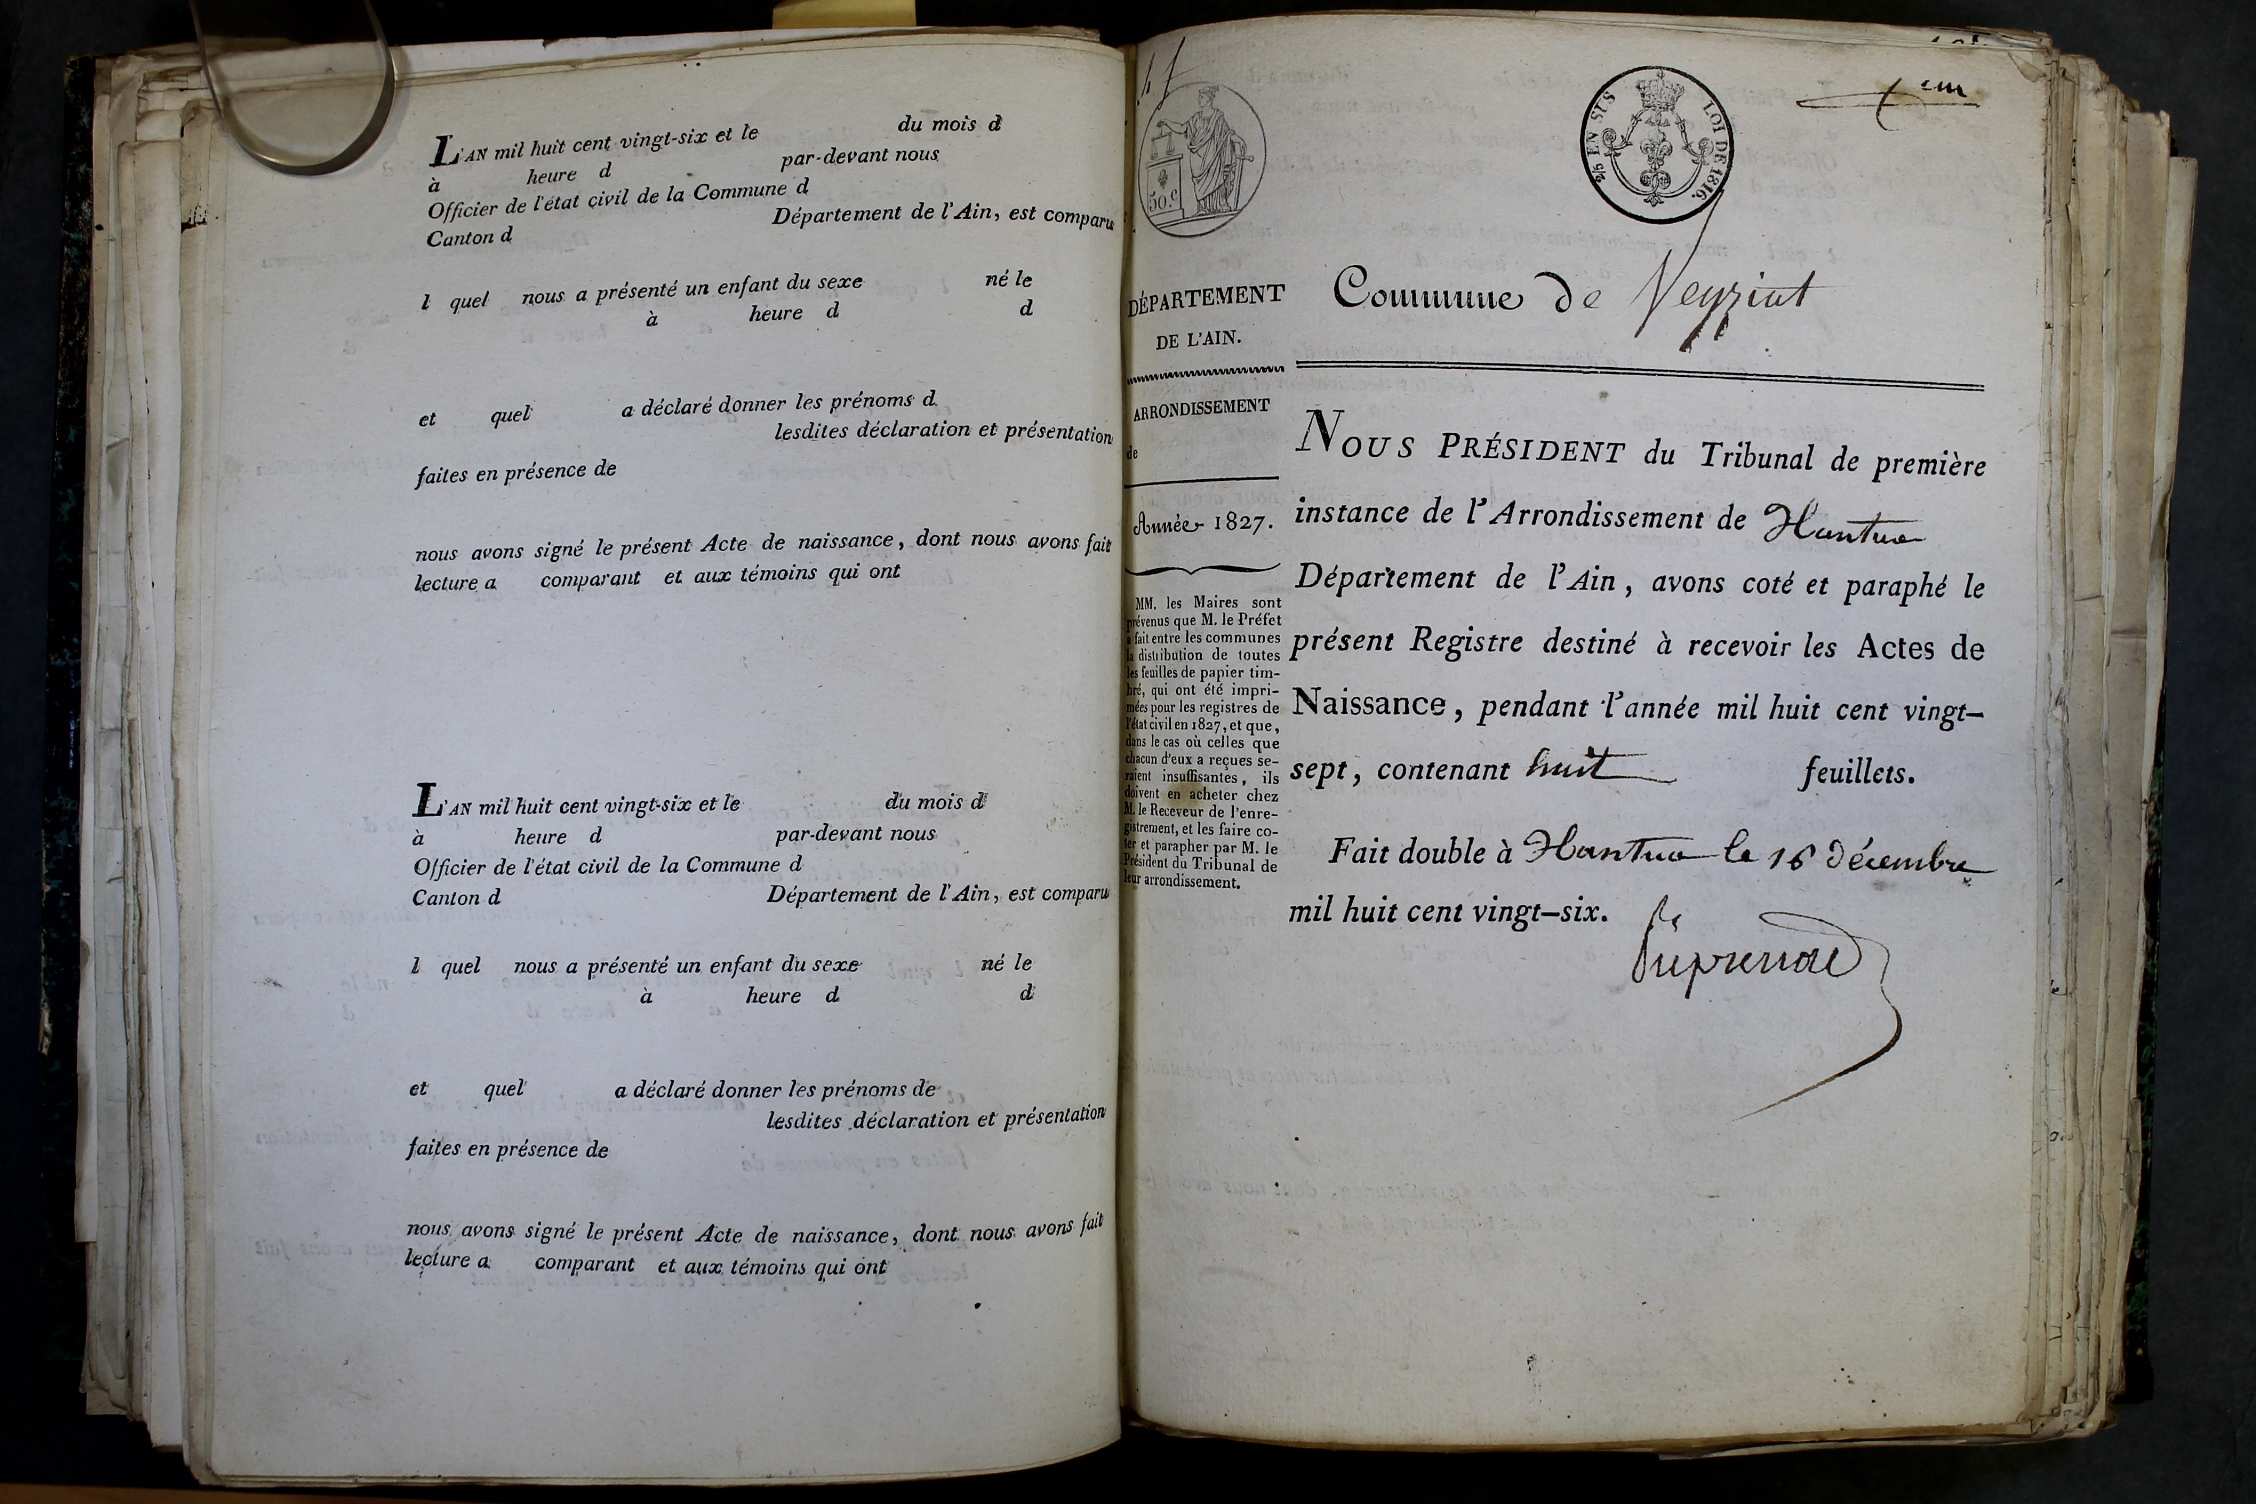 L'AN mil huit cent vingt-six et le du mois d
à heure d par-devant nous
Officier de l'état civil de la Commune d
Canton d Département de l'Ain, est comparu
l quel nous a présenté un enfant du sexe né le
à heure d d
et quel a déclaré donner les prénoms d
lesdites déclaration et présentation
faites en présence de
nous avons signé le présent Acte de naissance, dont nous avons fait
lecture a comparant et aux témoins qui ont
L'AN mil huit cent vingt-six et le du mois d
à heure d par-devant nous
Officier de l'état civil de la Commune d
Canton d Département de l'Ain, est comparu
l quel nous a présenté un enfant du sexe né le
à heure d d
et quel a déclaré donner les prénoms de
lesdites déclaration et présentation
faites en présence de
nous avons signé le présent Acte de naissance, dont nous avons fait
lecture a comparant et aux témoins qui ont
50.c
EN SUS LOI DE 1816.
DÉPARTEMENT
DE L'AIN.
ARRONDISSEMENT
de
Année 1827.
MM. les Maires sont
prévenus que M. le Préfet
a fait entre les communes
la distribution de toutes
les feuilles de papier tim-
bré, qui ont été impri-
mées pour les registres de
l'état civil en 1827, et que,
dans le cas où celles que
chacun d'eux a reçues se-
raient insuffisantes, ils
doivent en acheter chez
M. le Receveur de l'enre-
gistrement, et les faire co-
ter et parapher par M. le
Président du Tribunal de
leur arrondissement.
Commune de Veyziat
NOUS PRÉSIDENT du Tribunal de première
instance de l'Arrondissement de Nantua
Département de l'Ain, avons coté et paraphé le
présent Registre destiné à recevoir les Actes de
Naissance, pendant l'année mil huit cent vingt-
sept, contenant huit feuillets.
Fait double à Nantua le 16 décembre
mil huit cent vingt-six.